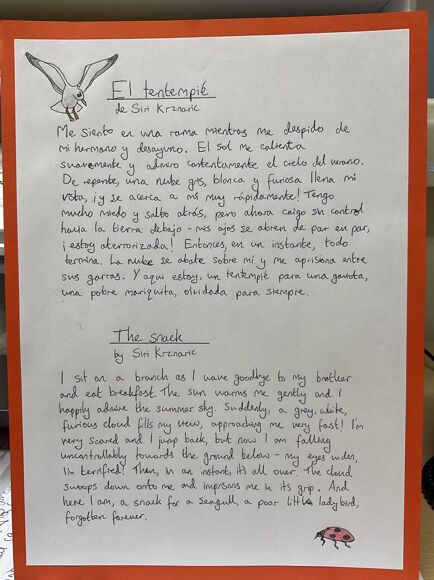 El tentempié
de Siri Krznaric
Me siento en una rama mientras me despido de
mi hermano y desayuno. El sol me calienta
suavemente y admiro contentamente el cielo del verano.
De repente, una nube gris, blanca y furiosa llena mi
vista, ¡y se acerca a mí muy rápidamente! Tengo
mucho miedo y salto atrás, pero ahora caigo sin control
hacia la tierra debajo - mis ojos se abren de par en par,
¡estoy aterrorizada! Entonces, en un instante, todo
termina. La nube se abate sobre mí y me aprisiona entre
sus garras. Y aquí estoy, un tentempié para una gaviota,
una pobre mariquita, olvidada para siempre.
The snack
by Siri Krznaric
I sit on a branch as I wave goodbye to my brother
and eat breakfast. The sun warms me gently and I
happily admire the summer sky. Suddenly, a grey, white,
furious cloud fills my view, approaching me very fast! I'm
very scared and I jump back, but now I am falling
uncontrollably towards the ground below - my eyes widen,
I'm terrified! Then, in an instant, it's all over. The cloud
swoops down onto me and imprisons me in its grip. And
here I am, a snack for a seagull, a poor little ladybird,
forgotten forever.